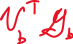 𝒱_b^T 𝒢_b